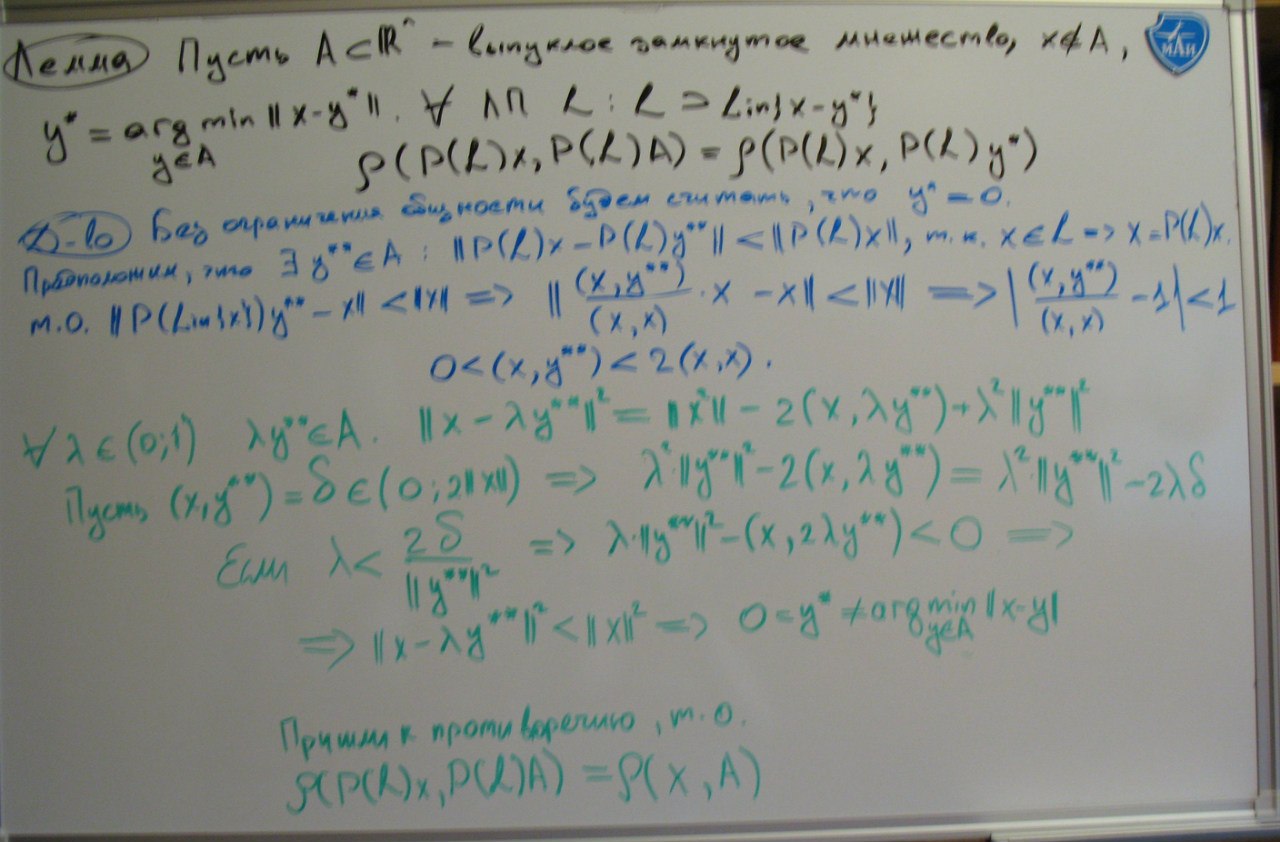 Лемма Пусть A⊂ℝⁿ – выпуклое замкнутое множество, x∉A,
МАИ
y* = arg min ‖x-y*‖. ∀ ЛП L : L ⊃ Lin{x-y*}
y∈A
ρ(P(L)x, P(L)A) = ρ(P(L)x, P(L)y*)
Д-во Без ограничения общности будем считать, что y* = 0.
Предположим, что ∃ y**∈A : ‖P(L)x – P(L)y**‖ < ‖P(L)x‖, т.к. x∈L => x=P(L)x.
т.о. ‖P(Lin{x})y** – x‖ < ‖x‖ => ‖ (x,y**)/(x,x) · x – x‖ < ‖x‖ => | (x,y**)/(x,x) – 1| < 1
0 < (x,y**) < 2(x,x).
∀ λ∈(0;1) λy**∈A. ‖x – λy**‖² = ‖x²‖ – 2(x,λy**)+λ²‖y**‖²
Пусть (x,y**) = δ ∈ (0; 2‖x‖) => λ²·‖y**‖² – 2(x,λy**) = λ²·‖y**‖² – 2λδ
Если λ < 2δ/‖y**‖² => λ·‖y**‖² – (x,2λy**) < 0 =>
=> ‖x – λy**‖² < ‖x‖² => 0 = y* ≠ arg min ‖x-y‖
y∈A
Пришли к противоречию, т.о.
ρ(P(L)x, P(L)A) = ρ(x, A)